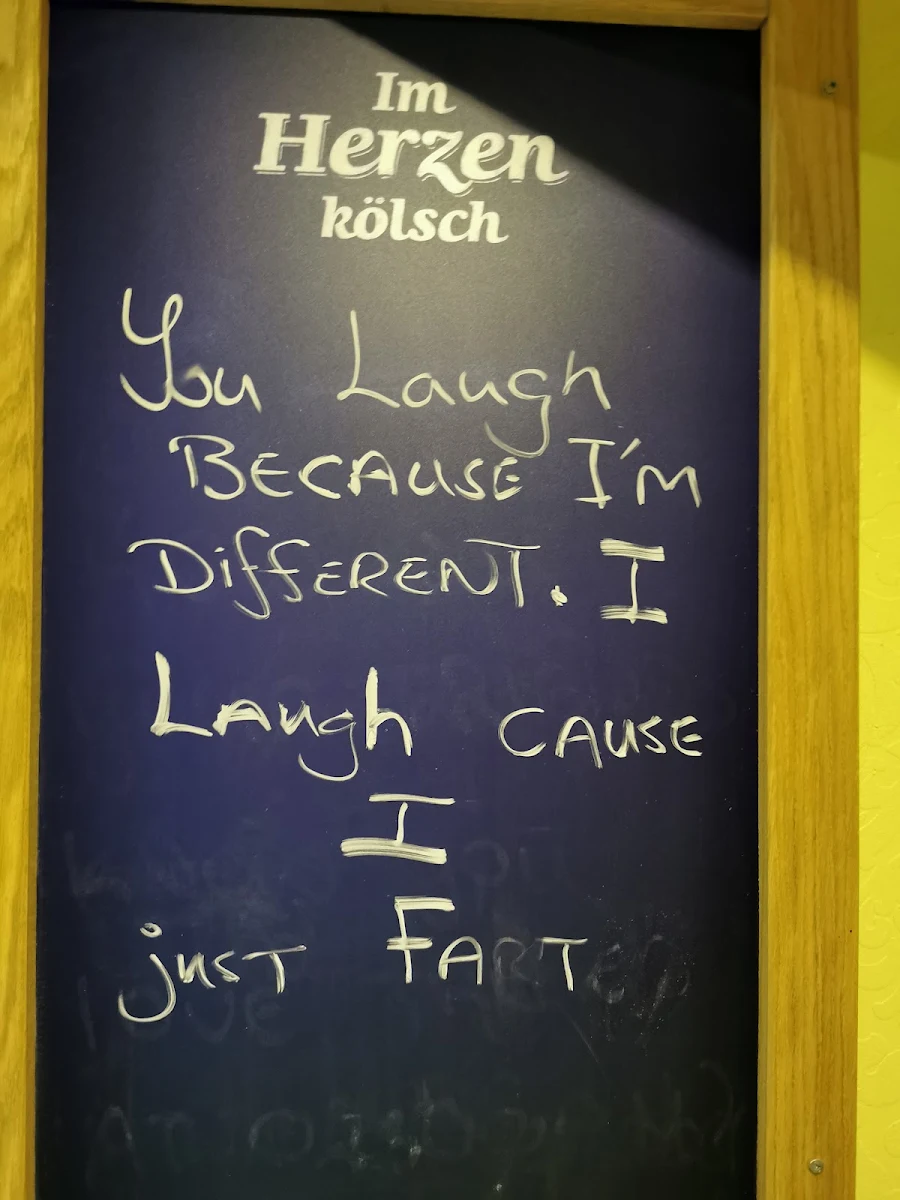 Im
Herzen
kölsch
You Laugh
BECAUSE I'M
DiffERENT. I
LAugh CAUSE
I
just FARTED